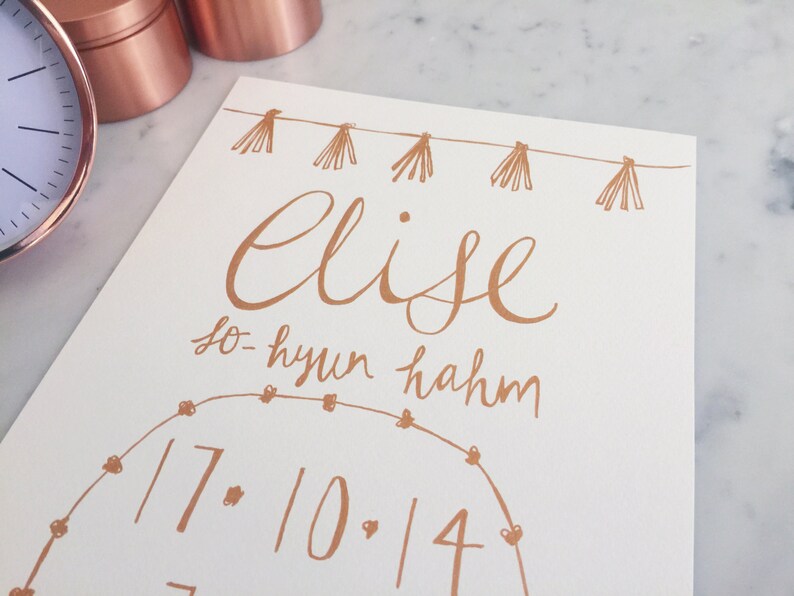 elise
so-hyun hahm
17·10·14